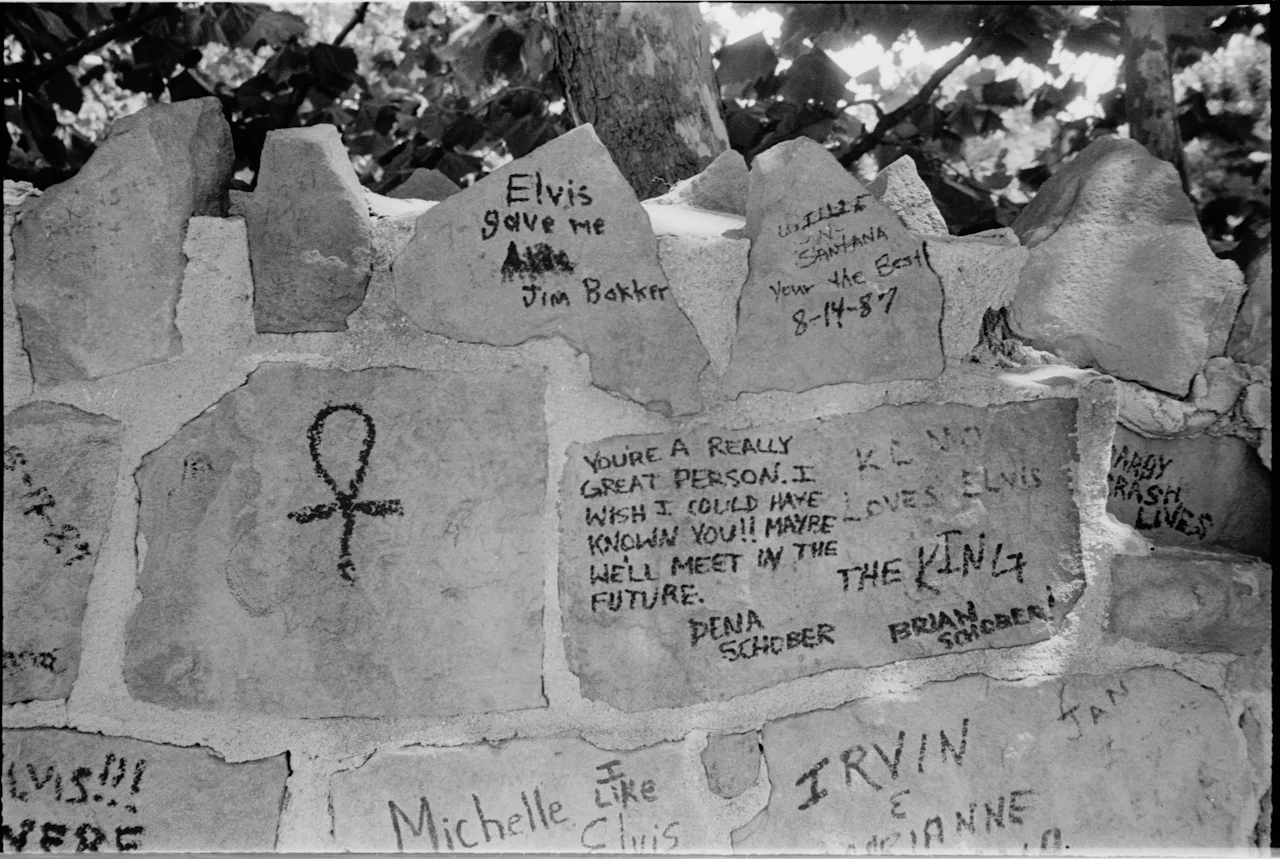 Elvis
gave me
Jim Bakker
WILLIE
-N-
SANTANA
Your the Best
8-14-87
YOU'RE A REALLY
GREAT PERSON. I
WISH I COULD HAVE
KNOWN YOU!! MAYBE
WE'LL MEET IN THE
FUTURE.
DENA
SCHOBER
LOVES ELVIS
THE KING
BRIAN
SCHOBER!
CRASH
LIVES
8-17-87
ELVIS!!!
WERE
Michelle
I
Like
Elvis
IRVIN
&
ARIANNE